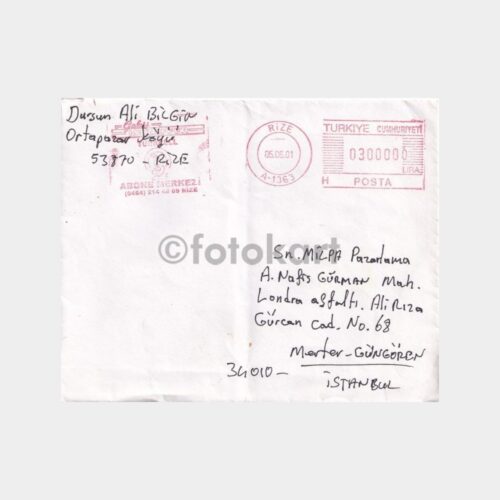 Dursun Ali BİLGİN
Ortapazar Köyü
53870 - RİZE
ABONE MERKEZİ
(0464) 214 RİZE
RİZE
05.06.01
A-1363
TÜRKİYE CUMHURİYETİ
0300000
LİRA
H POSTA
©fotokart
Sn. MİLPA Pazarlama
A. Nafiz GÜRMAN Mah.
Londra asfaltı. Ali Rıza
Gürcan Cad. No. 68
Merter-GÜNGÖREN
34010-
İSTANBUL